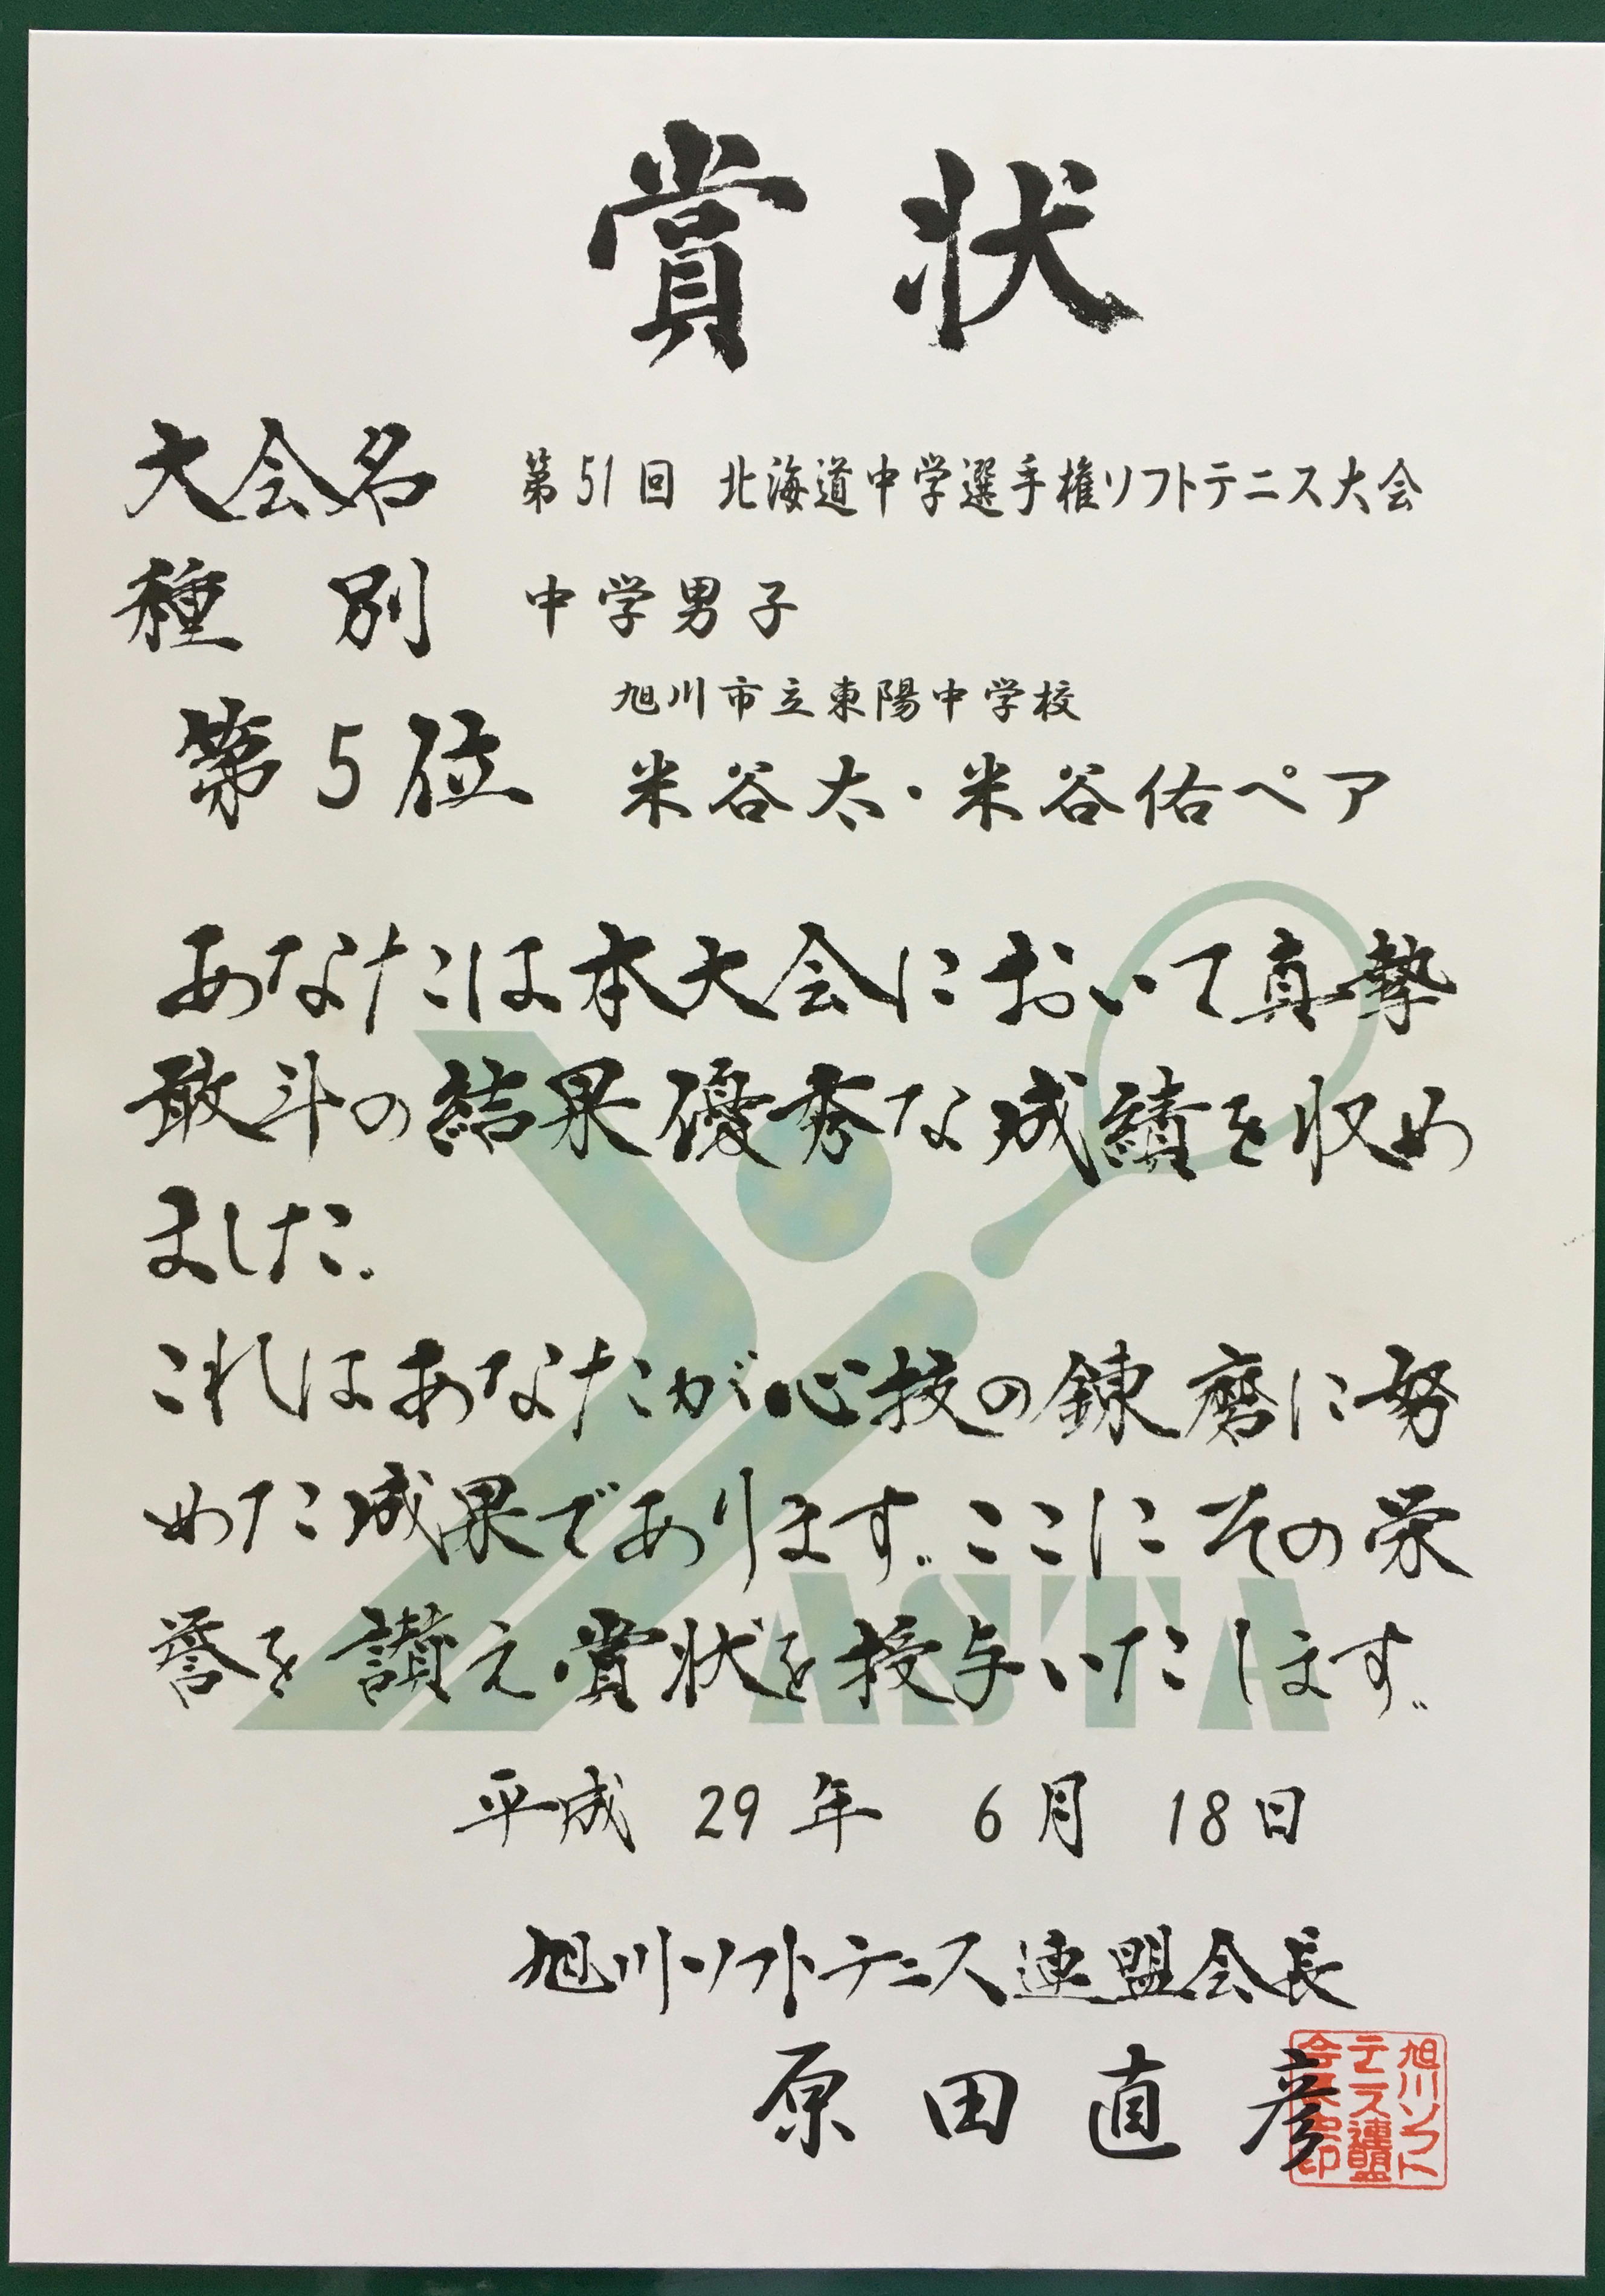 賞状
大会名 第51回 北海道中学選手権ソフトテニス大会
種別 中学男子
旭川市立東陽中学校
第5位 米谷太・米谷佑ペア
あなたは本大会において真摯
敢斗の結果優秀な成績を収め
ました。
これはあなたが心技の錬磨に努
めた成果であります。ここにその栄
誉を讃え賞状を授与いたします。
ASTA
平成 29 年 6 月 18 日
旭川ソフトテニス連盟会長
原田直彦
旭川ソフト
テニス連盟